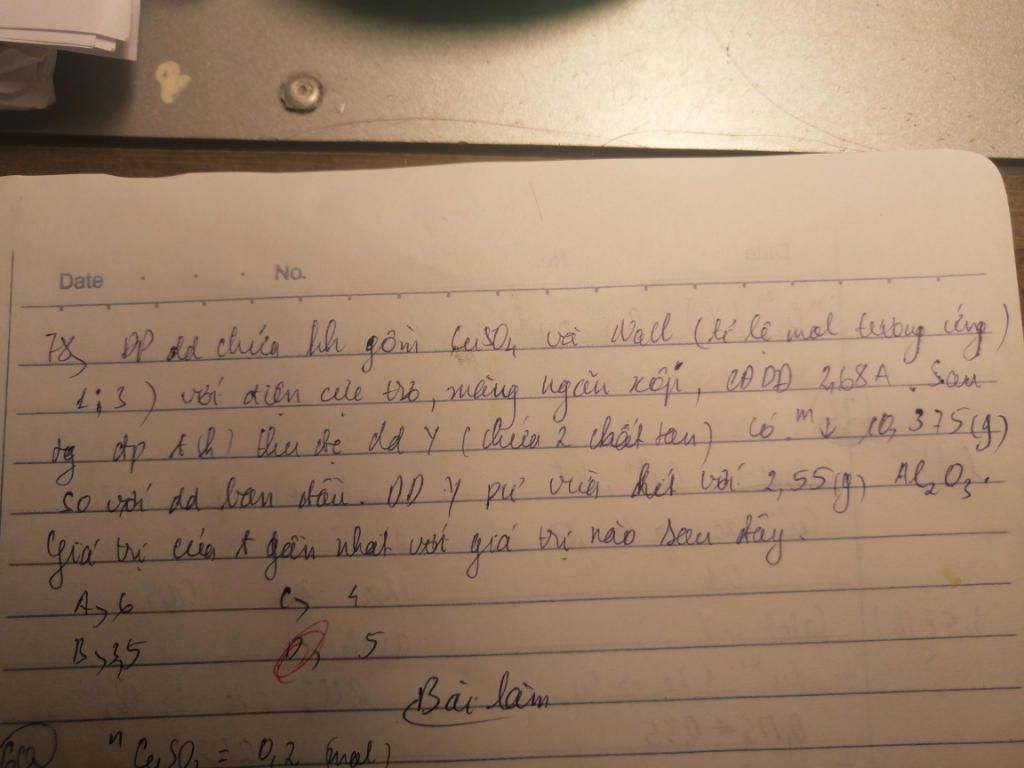 Date . . . No.
78, ĐP dd chứa hh gồm CuSO4 và NaCl (tỉ lệ mol tương ứng)
1:3) với điện cực trơ, màng ngăn xốp, CĐDĐ 2,68A. Sau
tg đp t(h) thu đc dd Y (chứa 2 chất tan) có m↓ 10,375(g)
so với dd ban đầu. DD Y pư vừa hết với 2,55(g) Al2O3.
Giá trị của t gần nhất với giá trị nào sau đây.
A, 6 C, 4
B, 3,5 D, 5
Bài làm
n CuSO4 = 0,2 (mol)